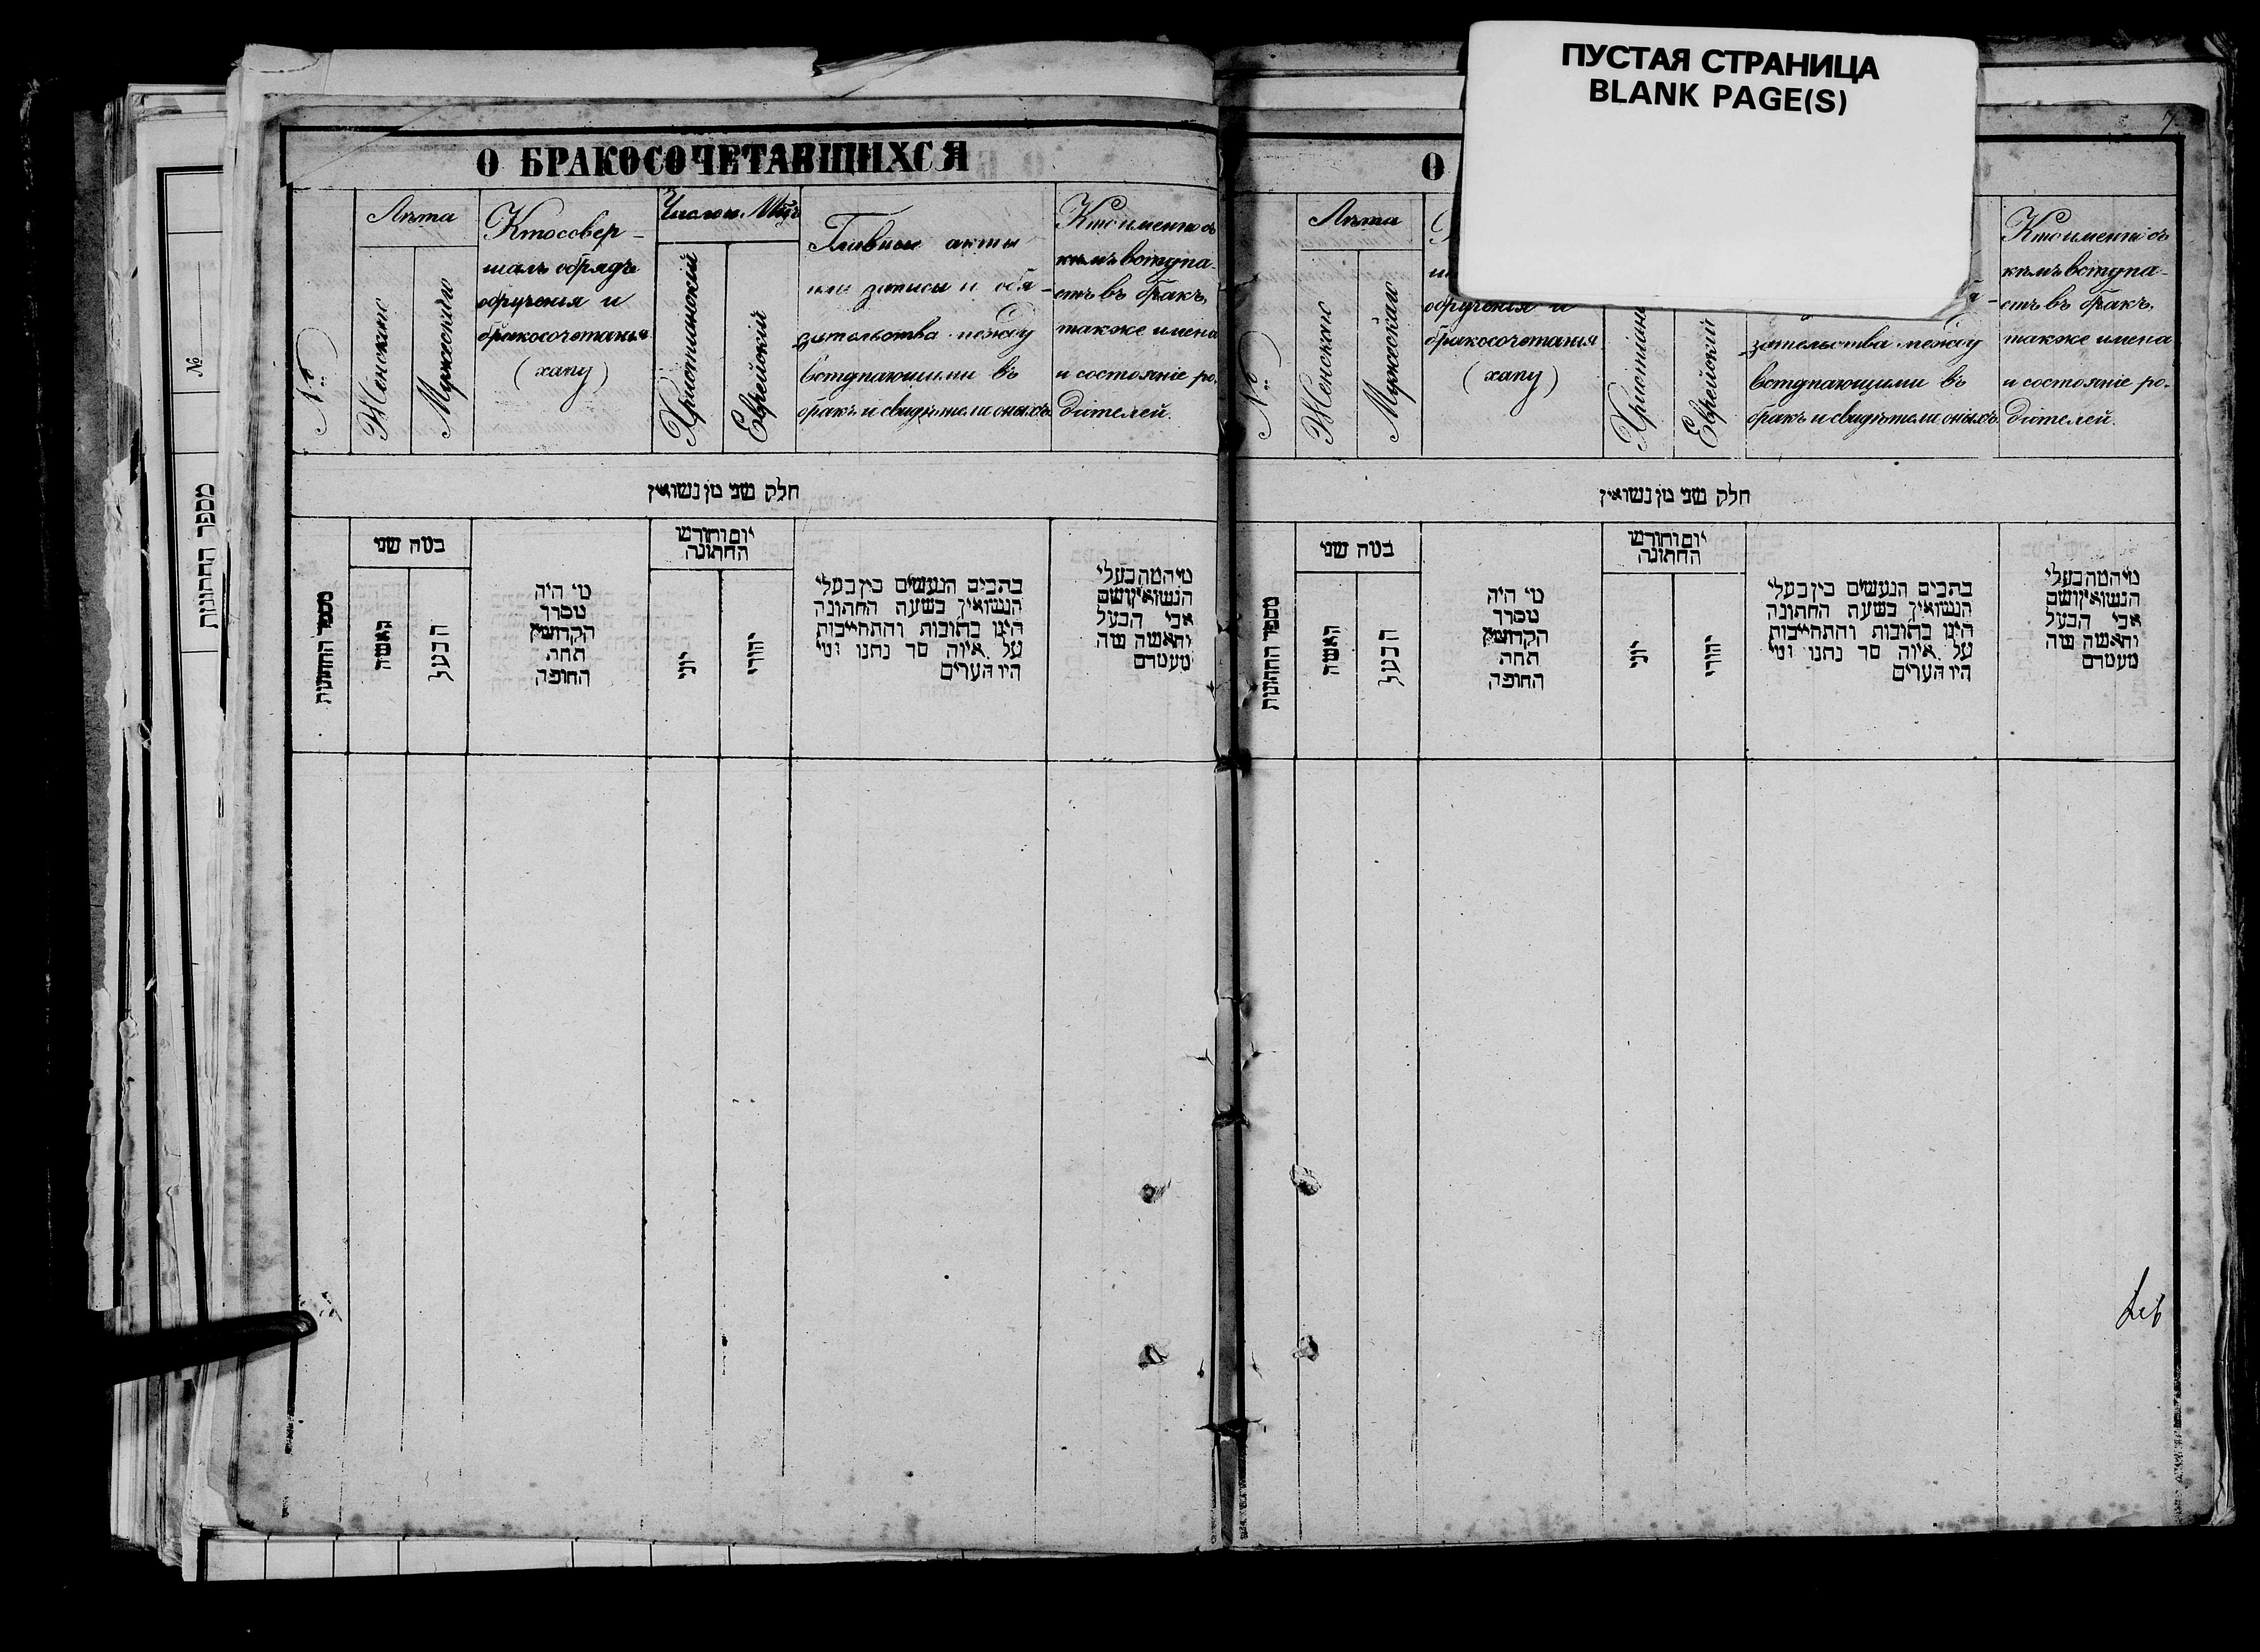 ПУСТАЯ СТРАНИЦА
BLANK PAGE(S)
7
№
מספר החתונות
О БРАКОСОЧЕТАВШИХСЯ
№
Лѣта
Женскаго
Мужескаго
Кто совер-
шалъ обрядъ
обрученія и
бракосочетанія
(хапу)
Число и Мѣцъ
Христіанскій
Еврейскій
Главные акты
или записи и обя-
зательства между
вступающими въ
бракъ и свидѣтели оныхъ
Кто именно съ
кѣмъ вступа-
етъ въ бракъ,
также имена
и состояніе ро-
дителей.
חלק שני מן נשואין
מספר החתונות
כמה שני
האשה
הבעל
מי היה
מסדר
הקדושין
תחת
החופה
יום וחודש
החתונה
יוני
יהודי
כתבים הנעשים בין בעלי
הנשואין בשעת החתונה
היינו כתובות והתחייבות
על איזה סך נתנו ומי
היו העדים
מי המה בעלי
הנשואין ושם
אבי הבעל
והאשה מה
מעמדם
О
№
Лѣта
Женскаго
Мужескаго
обрученія и
бракосочетанія
(хапу)
Еврейскій
зательства между
вступающими въ
бракъ и свидѣтели оныхъ
Кто именно съ
кѣмъ вступа-
етъ въ бракъ,
также имена
и состояніе ро-
дителей.
חלק שני מן נשואין
מספר החתונות
כמה שני
האשה
הבעל
מי היה
מסדר
הקדושין
תחת
החופה
יום וחודש
החתונה
יוני
יהודי
כתבים הנעשים בין בעלי
הנשואין בשעת החתונה
היינו כתובות והתחייבות
על איזה סך נתנו ומי
היו העדים
מי המה בעלי
הנשואין ושם
אבי הבעל
והאשה מה
מעמדם